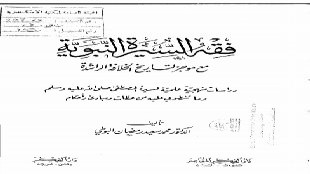 فقه السيرة النبوية
مع موجز لتاريخ الخلافة الراشدة
دراسات منهجية علمية لسيرة المصطفى صلى الله عليه وسلم
وما تنطوي عليه من عظات ومبادئ وأحكام
تأليف
الدكتور محمد سعيد رمضان البوطي
دار الفكر
دار الفكر المعاصر